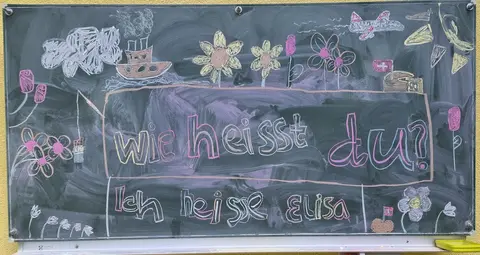 Wie heisst du?
Ich heisse Elisa